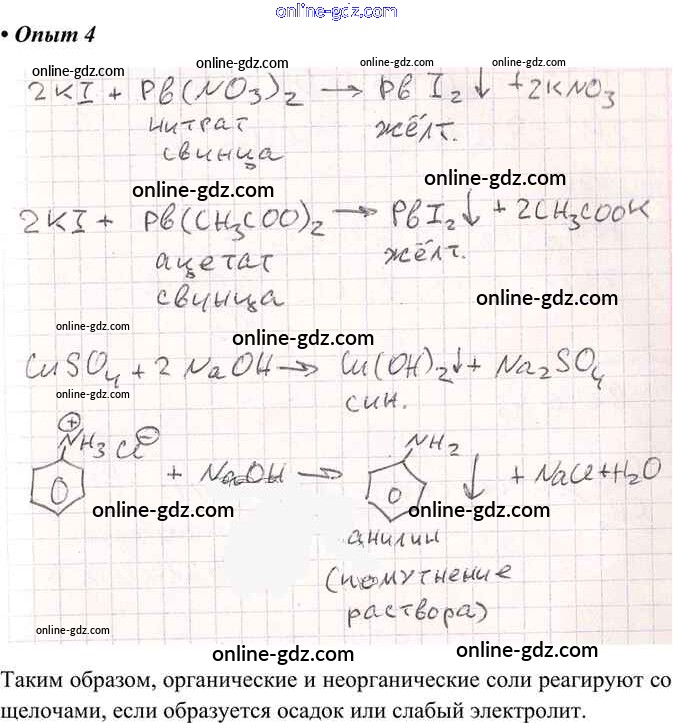 online-gdz.com
• Опыт 4
online-gdz.com online-gdz.com online-gdz.com
2KI + Pb(NO3)2 → PbI2↓ + 2KNO3
нитрат жёлт.
свинца
online-gdz.com online-gdz.com
2KI + Pb(CH3COO)2 → PbI2↓ + 2CH3COOK
ацетат жёлт.
свинца
online-gdz.com
online-gdz.com
online-gdz.com
CuSO4 + 2NaOH → Cu(OH)2↓ + Na2SO4
online-gdz.com
син.
online-gdz.com
⊕NH3 Cl⊖ + NaOH → NH2 ↓ + NaCl + H2O
online-gdz.com online-gdz.com
анилин
(помутнение
раствора)
online-gdz.com
online-gdz.com online-gdz.com
Таким образом, органические и неорганические соли реагируют со
щелочами, если образуется осадок или слабый электролит.